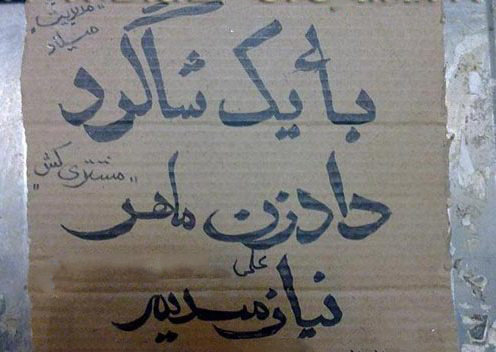 "مدیریت"
میلاد
بائ یک شاگرد
"مشتری کش"
دادزن ماهر
علی
نیازمدیم